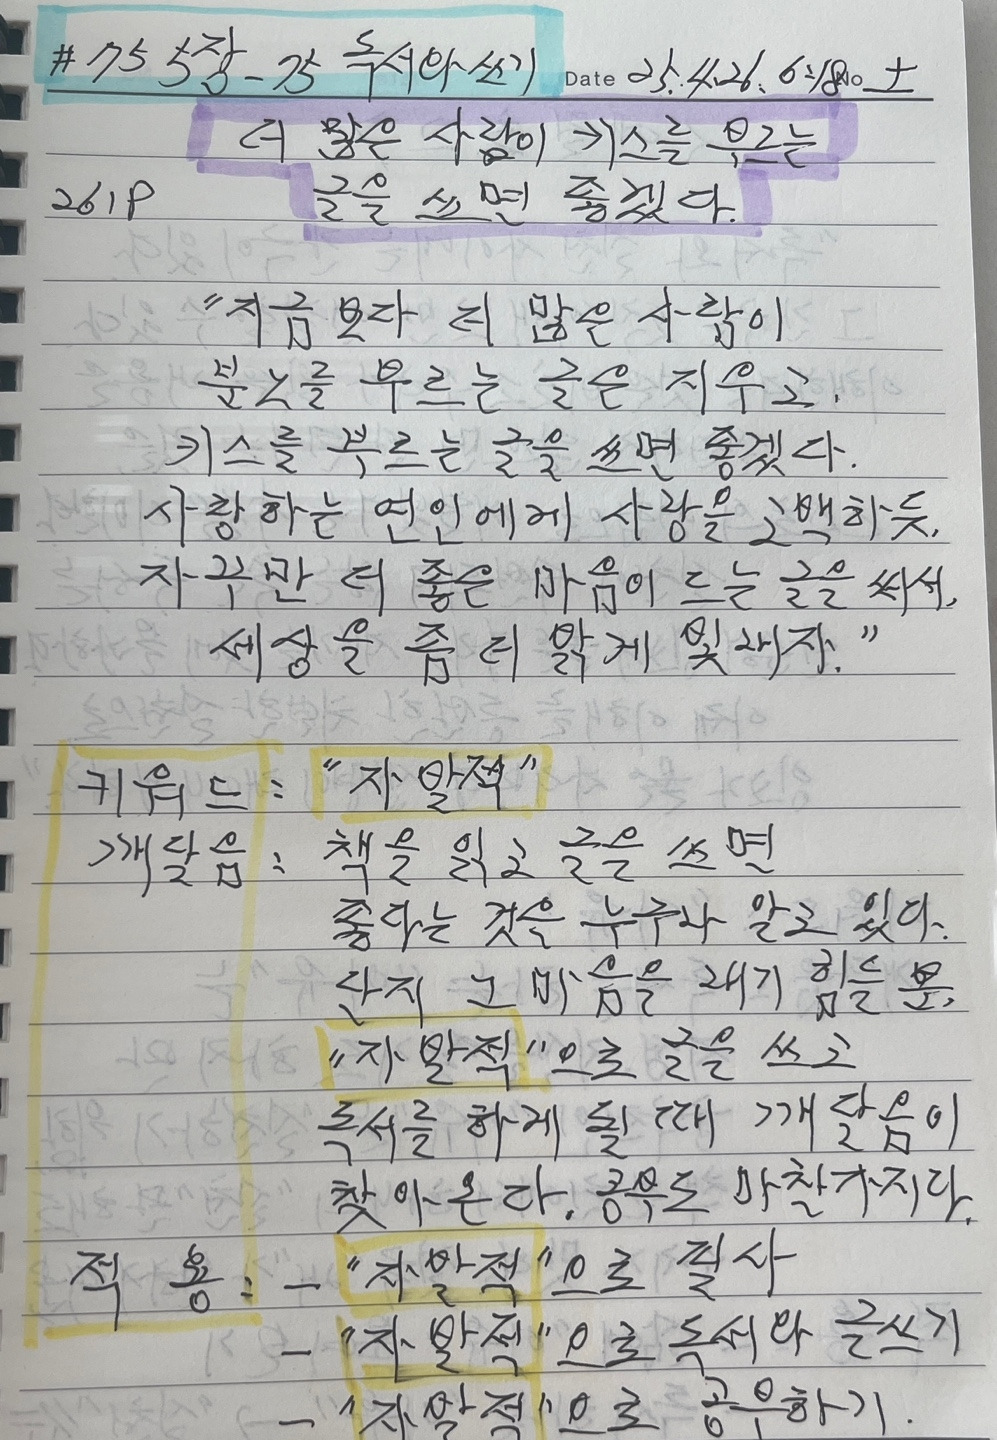 #75 5장-75 독서와 쓰기 Date 25.4.26. 6:18 No 土
더 많은 사람이 키스를 부르는
261P 글을 쓰면 좋겠다.
"지금보다 더 많은 사람이
분노를 부르는 글은 지우고,
키스를 부르는 글을 쓰면 좋겠다.
사랑하는 연인에게 사랑을 고백하듯,
자꾸만 더 좋은 마음이 드는 글을 써서,
세상을 좀 더 맑게 빛내자."
키워드 : "자발적"
깨달음 : 책을 읽고 글을 쓰면
좋다는 것은 누구나 알고 있다.
단지 그 마음을 내기 힘들 뿐,
"자발적"으로 글을 쓰고
독서를 하게 될 때 깨달음이
찾아온다. 공부도 마찬가지다.
적용 : - "자발적"으로 필사
- "자발적"으로 독서와 글쓰기
- "자발적"으로 공부하기.